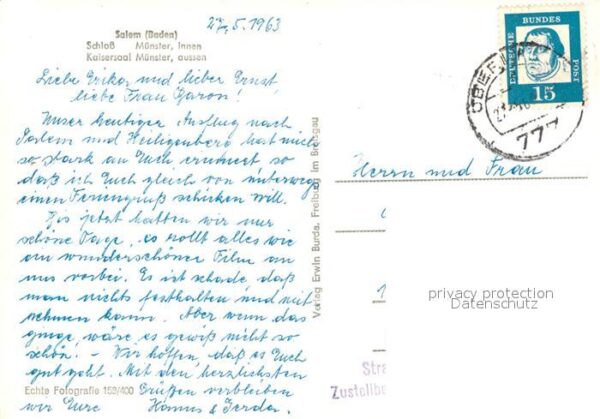 27.5.1963
Salem (Baden)
Schloß Münster, innen
Kaisersaal Münster, aussen
Liebe Erika, und lieber Ernst,
liebe Frau Baron!
Unser heutiger Ausflug nach
Salem und Heiligenberg hat mich
so stark an Euch erinnert so
daß ich Euch gleich von unterwegs
einen Feriengruß schicken will.
Bis jetzt hatten wir nur
schöne Tage, es rollt alles wie
ein wunderschöner Film an
uns vorbei. Es ist schade, daß
man nichts festhalten und mit
nehmen kann. Aber wenn das
ginge, wäre es gewiß nicht so
schön. - Wir hoffen, daß es Euch
gut geht. Mit den herzlichsten
Echte Fotografie 153/400 Grüßen verbleiben
wir Eure Hannes & Gerda.
Verlag Erwin Burda, Freiburg im Breisgau
DEUTSCHE BUNDES POST
15
777
Herrn und Frau
privacy protection
Datenschutz
Stra
Zustellbe